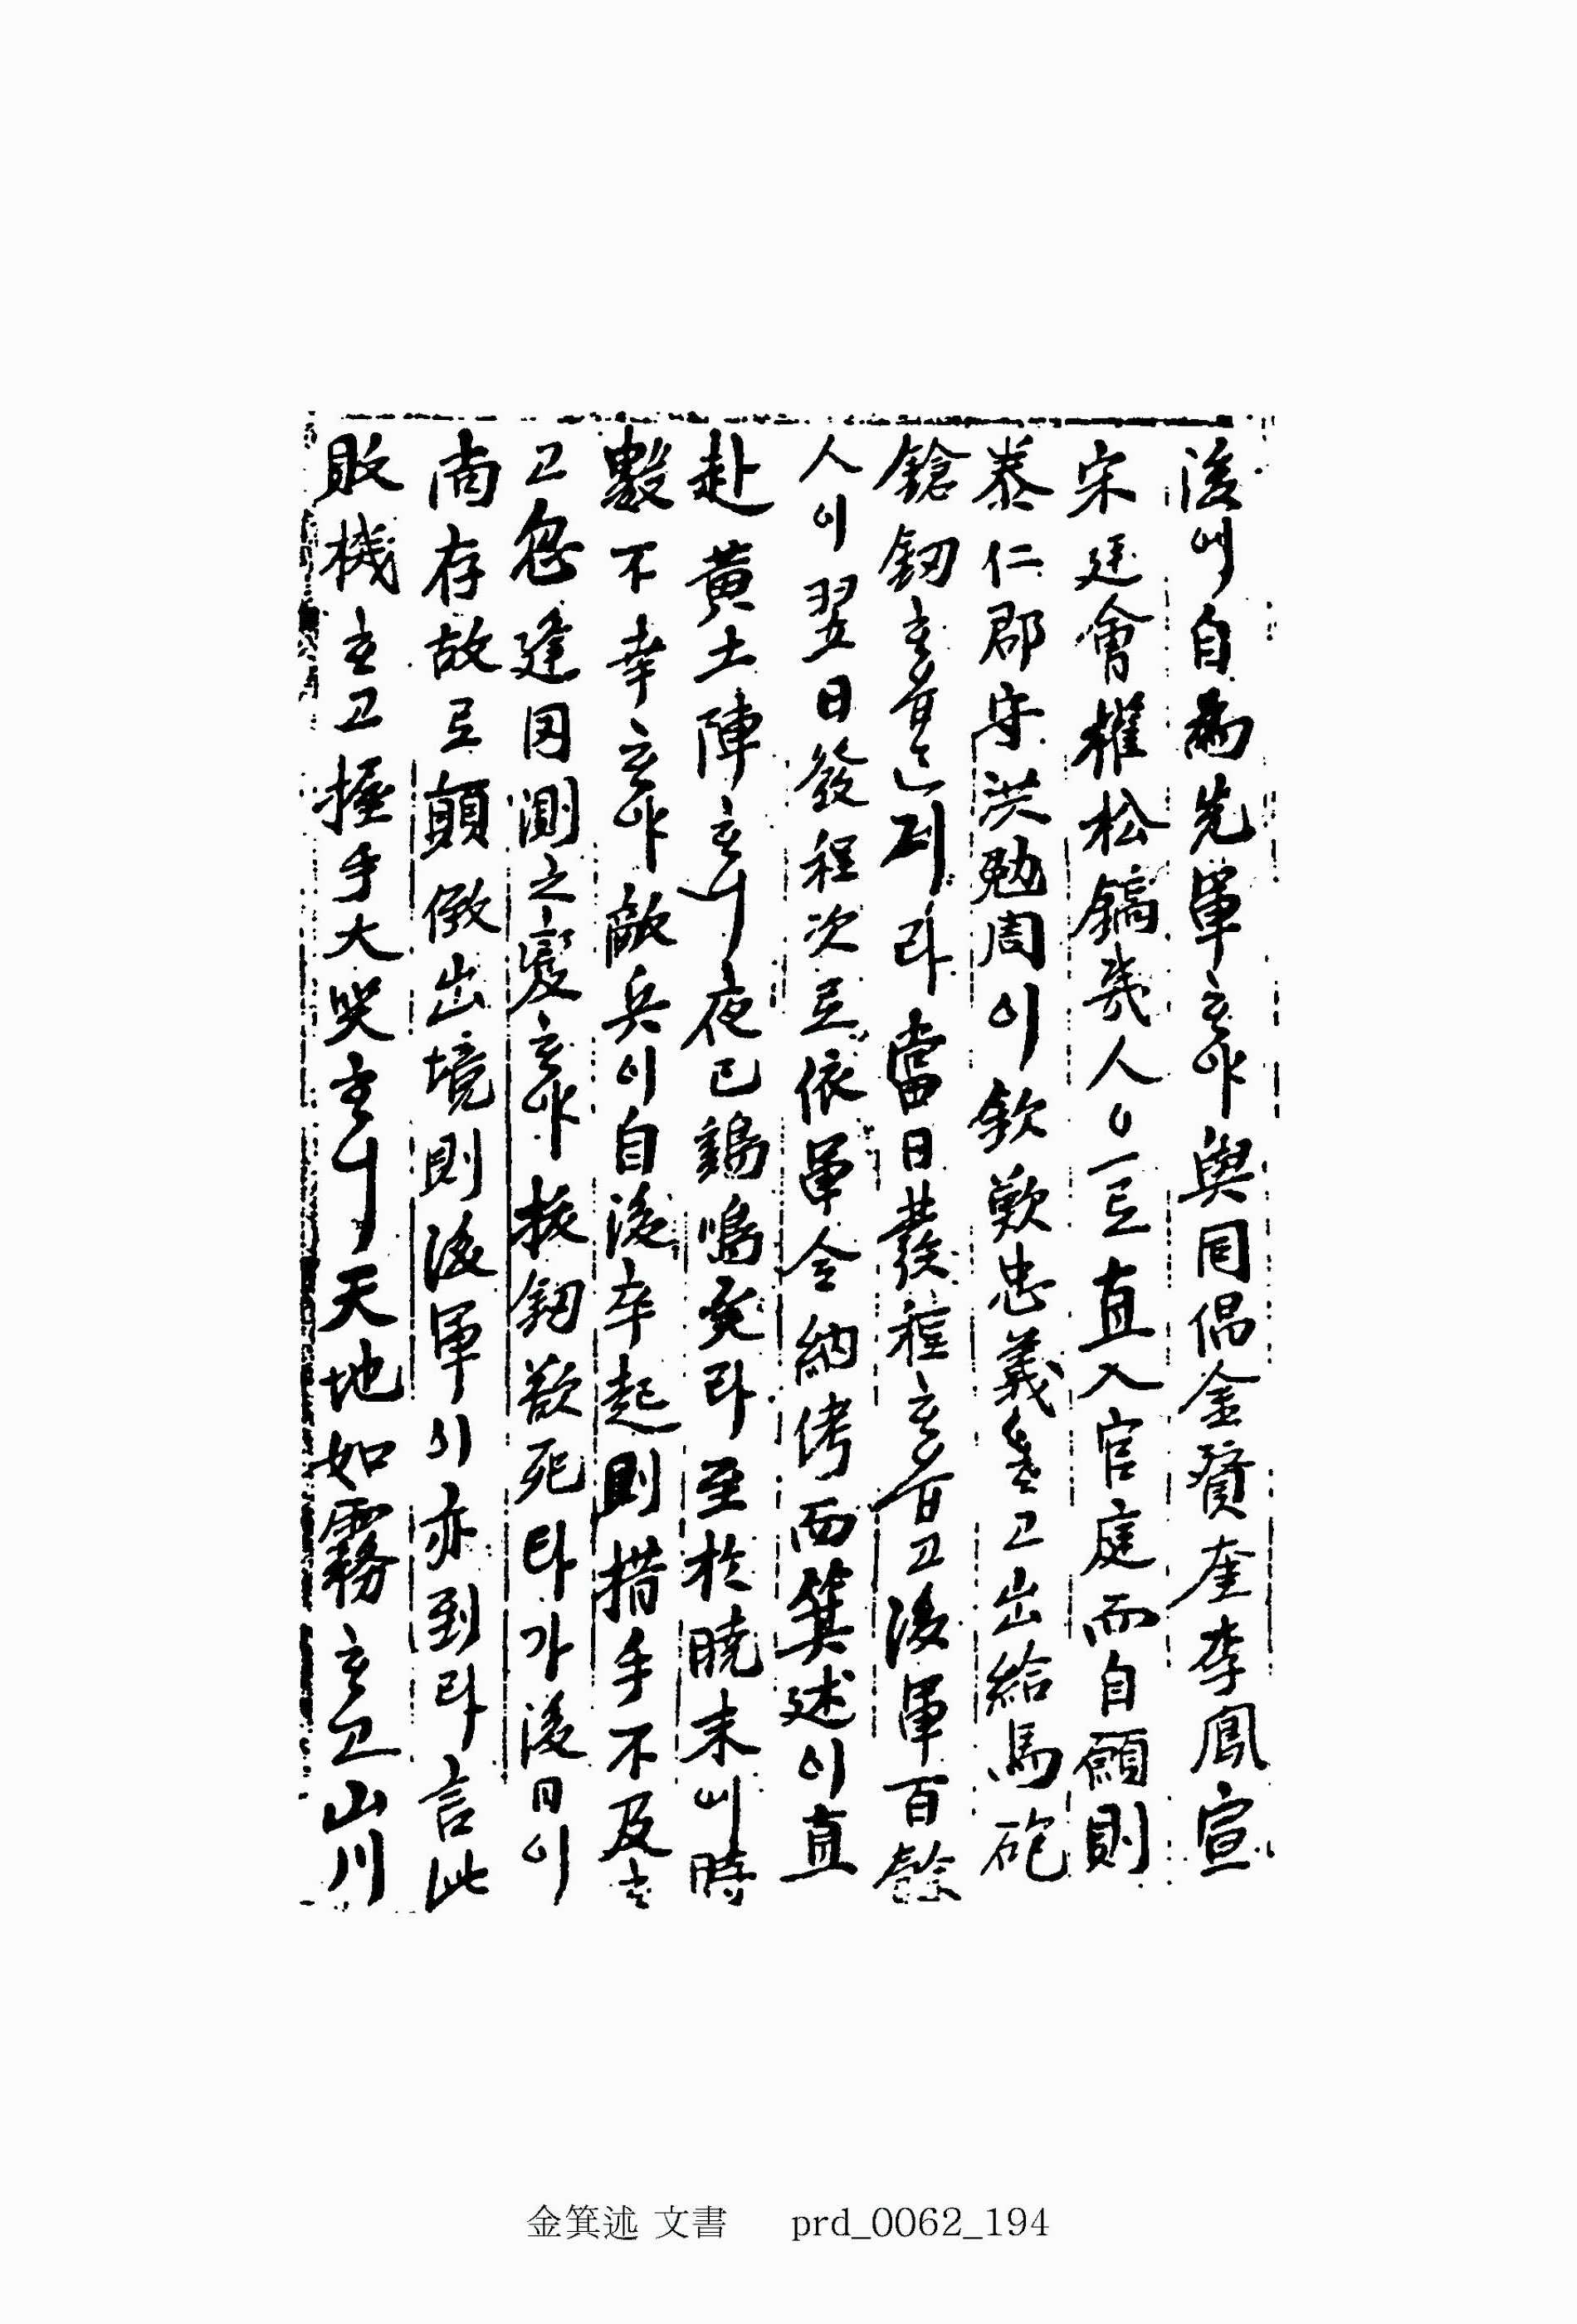 後에 自爲先軍하야 與同倡金贊奎李鳳宣
宋廷會權松鎬幾人으로 直入官庭而自願則
泰仁郡守洪勉周이 欽歎忠義하고 出給馬砲
鎗釼하온지라 當日發程하올고 後軍百餘
人이 翌日發程次로 依軍令納侤而箕述이 直
赴黃土陣하니 夜已鷄鳴矣라 至於曉未에 時
數不幸하야 敵兵이 自後卒起則措手不及하
고 忽逢罔測之變하야 拔釼欲死타가 後日이
尙存故로 顚倒出境則後軍이 亦到라 言此
敗機하고 握手大哭하니 天地如霧하고 山川
金箕述 文書 prd_0062_194